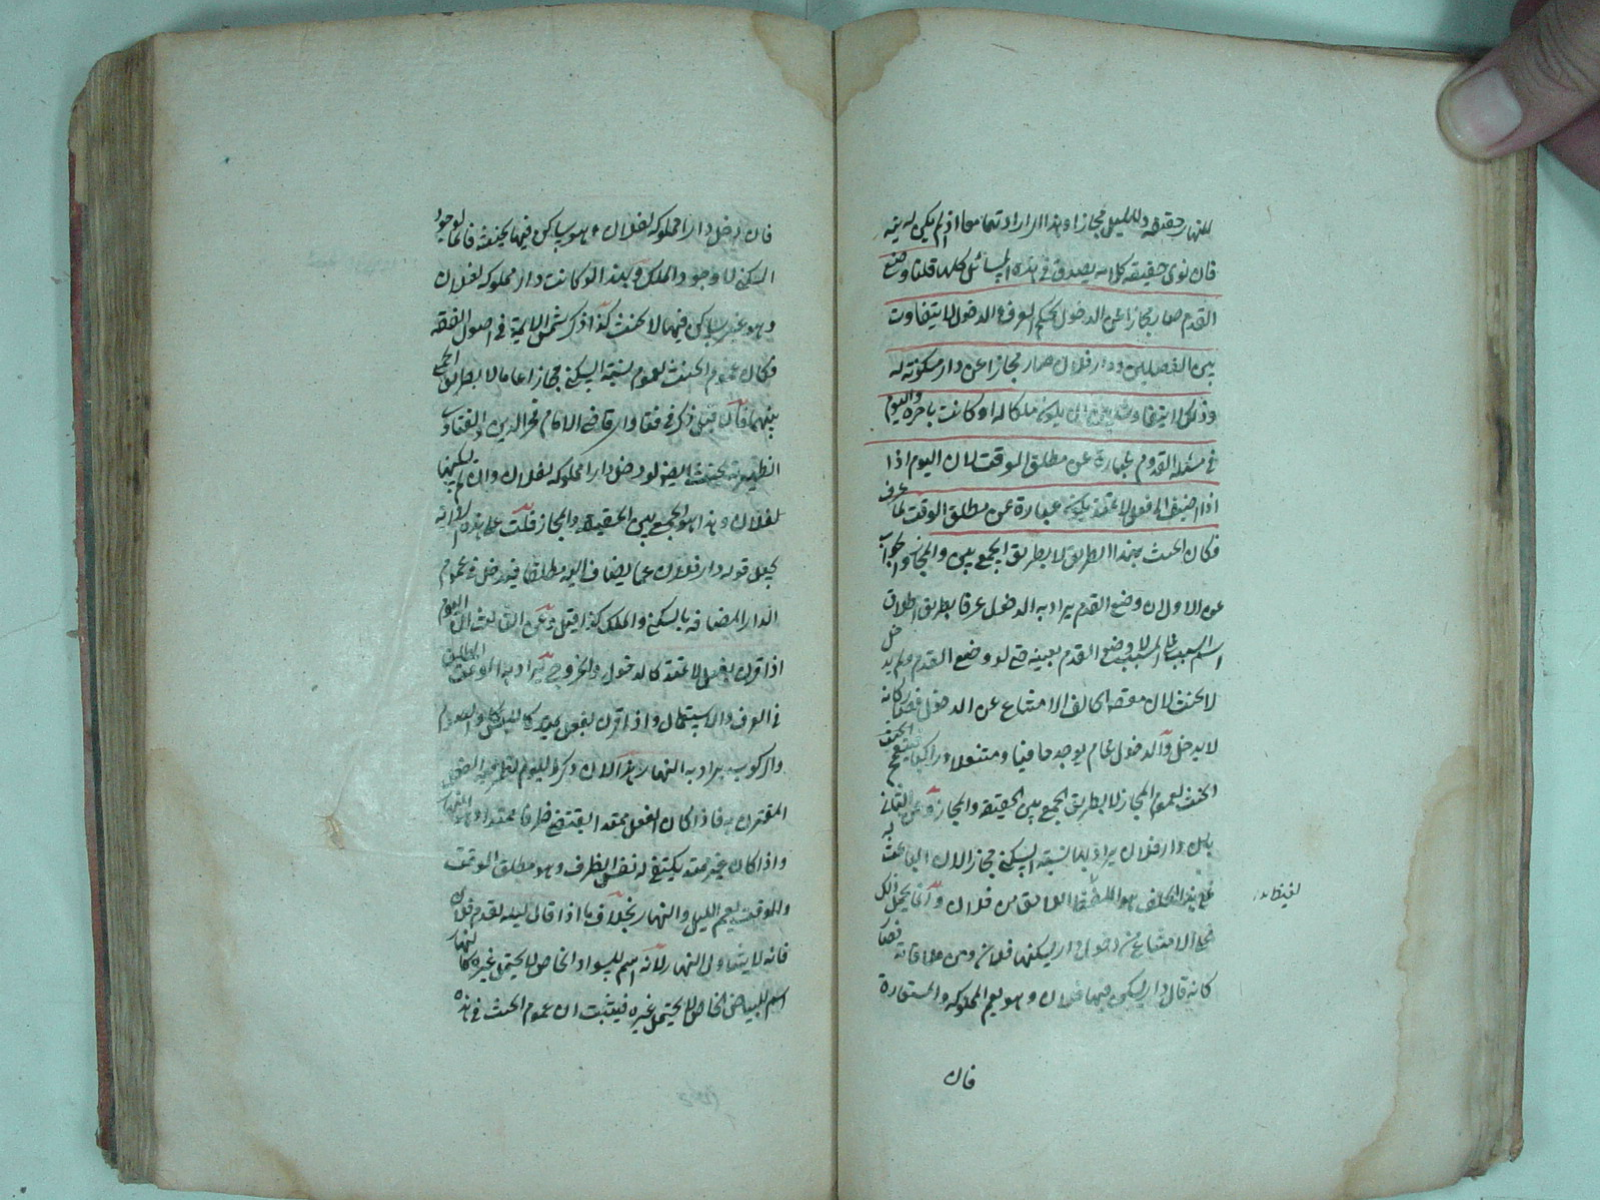 للنهار حقيقة ولليل مجازا وهذا اذا لم يكن له نية
فان نوى حقيقة كلامه يصدق في هذه المسائل كلها قلنا وضع
القدم صار مجازا عن الدخول بحكم العرف والدخول لا يتفاوت
بين الفصلين ودار فلان صار مجازا عن دار مسكونة له
وذلك لا يتفاوت بين ان يكون ملكا له او كانت باجرة واليوم
في مسئلة القدوم عبارة عن مطلق الوقت لان اليوم اذا
اذا اضيف الى فعل لا يمتد يكون عبارة عن مطلق الوقت لما عرف
فكان الحنث بهذا الطريق لا بطريق الجمع بين والمجاز والجواب
عن الاول ان وضع القدم يراد به الدخول عرفا بطريق اطلاق
اسم السبب على المسبب لا وضع القدم بعينه حتى لو وضع القدم ولم يدخل
لا يحنث لان مقصد الحالف الامتناع عن الدخول فصار كانه
لا يدخل والدخول عام يوجد حافيا ومتنعلا وراكبا فيقع الحنث
الحنث لعموم المجاز لا بطريق الجمع بين الحقيقة والمجاز وعن الثاني
بان دار فلان يراد به نسبة السكنى مجازا لان الباعث
على هذا الحلف هو الغيظ اللاحق من فلان وانما يحمل ذلك
على الامتناع من دخول دار يسكنها فلان ومن ملاقاته فصار
كانه قال دار يسكن فيها فلان وهو يعم المملوكة والمستعارة
فان
فان دخل دارا مملوكة لفلان وهو ساكن فيها يحنث فانما لوجود
السكنى لا وجود الملك ولهذا لو كانت دار مملوكة لفلان
وهو غير ساكن فيها لا يحنث كذا ذكر شمس الائمة في اصول الفقه
فكان عموم الحنث لعموم نسبة السكنى مجازا عاما لا بطريق الجمع
بينهما فان قيل ذكر في فتاوى قاضي الامام فخر الدين والفتاوى
الظهيرية يحنث ايضا لو دخل دارا مملوكة لفلان وان لم يسكنها
لفلان وهذا هو الجمع بين الحقيقة والمجاز قلت على هذه الرواية
يجعل قوله دار فلان عما يضاف اليه مطلقا فيدخل في عموم
الدار المضافة بالسكنى والملك كذا قيل وعن الثالث ان اليوم
اذا قرن بفعل لا يمتد كالدخول والخروج يراد به الوقت المطلق
في العرف والاستعمال واذا قرن بفعل يمتد كاللبس والصوم
والركوب يراد به النهار هذا لان ذكر اليوم لظرفية الفعل
المقترن به فاذا كان الفعل ممتدا يقتضي ظرفا ممتدا وهو النهار
واذا كان غير ممتد يكتفي له نفس الظرف وهو مطلق الوقت
والوقت يعم الليل والنهار بخلاف ما اذا قال ليلة يقدم فلان
فانه لا يتناول النهار لانه اسم للسواد الخاص لا يحتمل غيره كالنهار
اسم للبياض الخاص لا يحتمل غيره فيثبت ان عموم الحنث في هذه